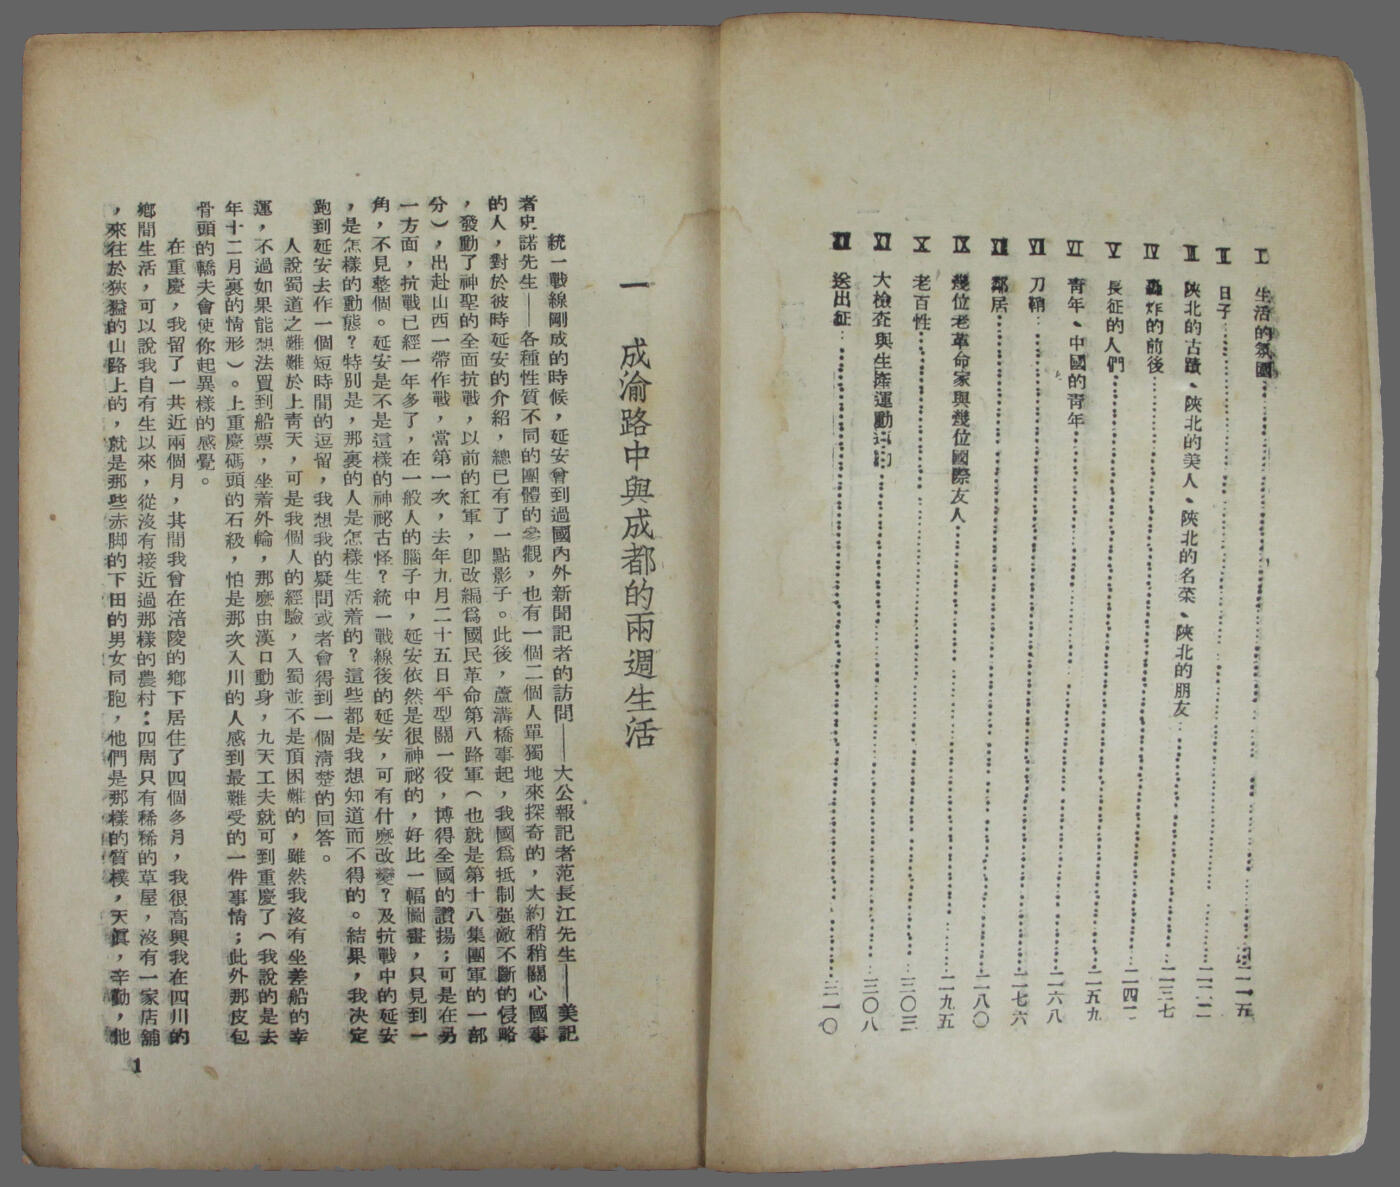 I 生活的氛圍 二一五
II 日子 二二二
III 陜北的古蹟、陜北的美人、陜北的名菜、陜北的朋友 二三七
IV 轟炸的前後 二四一
V 長征的人們 二五九
VI 青年、中國的青年 二六八
VII 刀鞘 二七六
VIII 鄰居 二八〇
IX 幾位老革命家與幾位國際友人 二九五
X 老百性 三〇三
XI 大檢查與生產運動 三〇八
XII 送出征 三一〇
一 成渝路中與成都的兩週生活
統一戰線剛成的時候，延安曾到過國內外新聞記者的訪問——大公報記者范長江先生——美記
者史諾先生——各種性質不同的團體的參觀，也有一個二個人單獨地來探奇的，大約稍稍關心國事
的人，對於彼時延安的介紹，總已有了一點影子。此後，蘆溝橋事起，我國爲抵制强敵不斷的侵略
，發動了神聖的全面抗戰，以前的紅軍，卽改編爲國民革命第八路軍（也就是第十八集團軍的一部
分），出赴山西一帶作戰，當第一次，去年九月二十五日平型關一役，博得全國的讚揚；可是在另
一方面，抗戰已經一年多了，在一般人的腦子中，延安依然是很神祕的，好比一幅圖畫，只見到一
角，不見整個。延安是不是這樣的神祕古怪？統一戰線後的延安，可有什麽改變？及抗戰中的延安
，是怎樣的動態？特別是，那裏的人是怎樣生活着的？這些都是我想知道而不得的。結果，我決定
跑到延安去作一個短時間的逗留，我想我的疑問或者會得到一個淸楚的回答。
人說蜀道之難難於上靑天，可是我個人的經驗，入蜀並不是頂困難的，雖然我沒有坐差船的幸
運，不過如果能想法買到船票，坐着外輪，那麽由漢口動身，九天工夫就可到重慶了（我說的是去
年十二月裏的情形）。上重慶碼頭的石級，怕是那次入川的人感到最難受的一件事情；此外那皮包
骨頭的轎夫會使你起異樣的感覺。
在重慶，我留了一共近兩個月，其間我曾在涪陵的鄉下居住了四個多月，我很高興我在四川的
鄉間生活，可以說我自有生以來，從沒有接近過那樣的農村：四周只有稀稀的草屋，沒有一家店舖
，來往於狹獈的山路上的，就是那些赤脚的下田的男女同胞，他們是那樣的質樸，天眞，辛勤，他
1